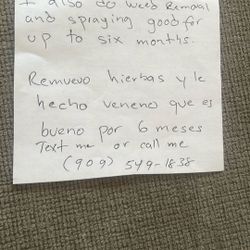 I also do weed Removal
and spraying good for
up to six months.
Remuevo hierbas y le
hecho veneno que es
bueno por 6 meses
Text me or call me
(909) 549-1838